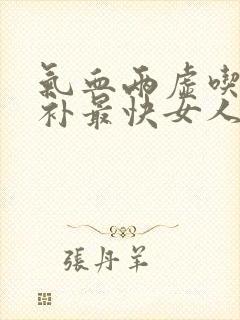 氣血兩虛喫
补最快女人
張丹羊